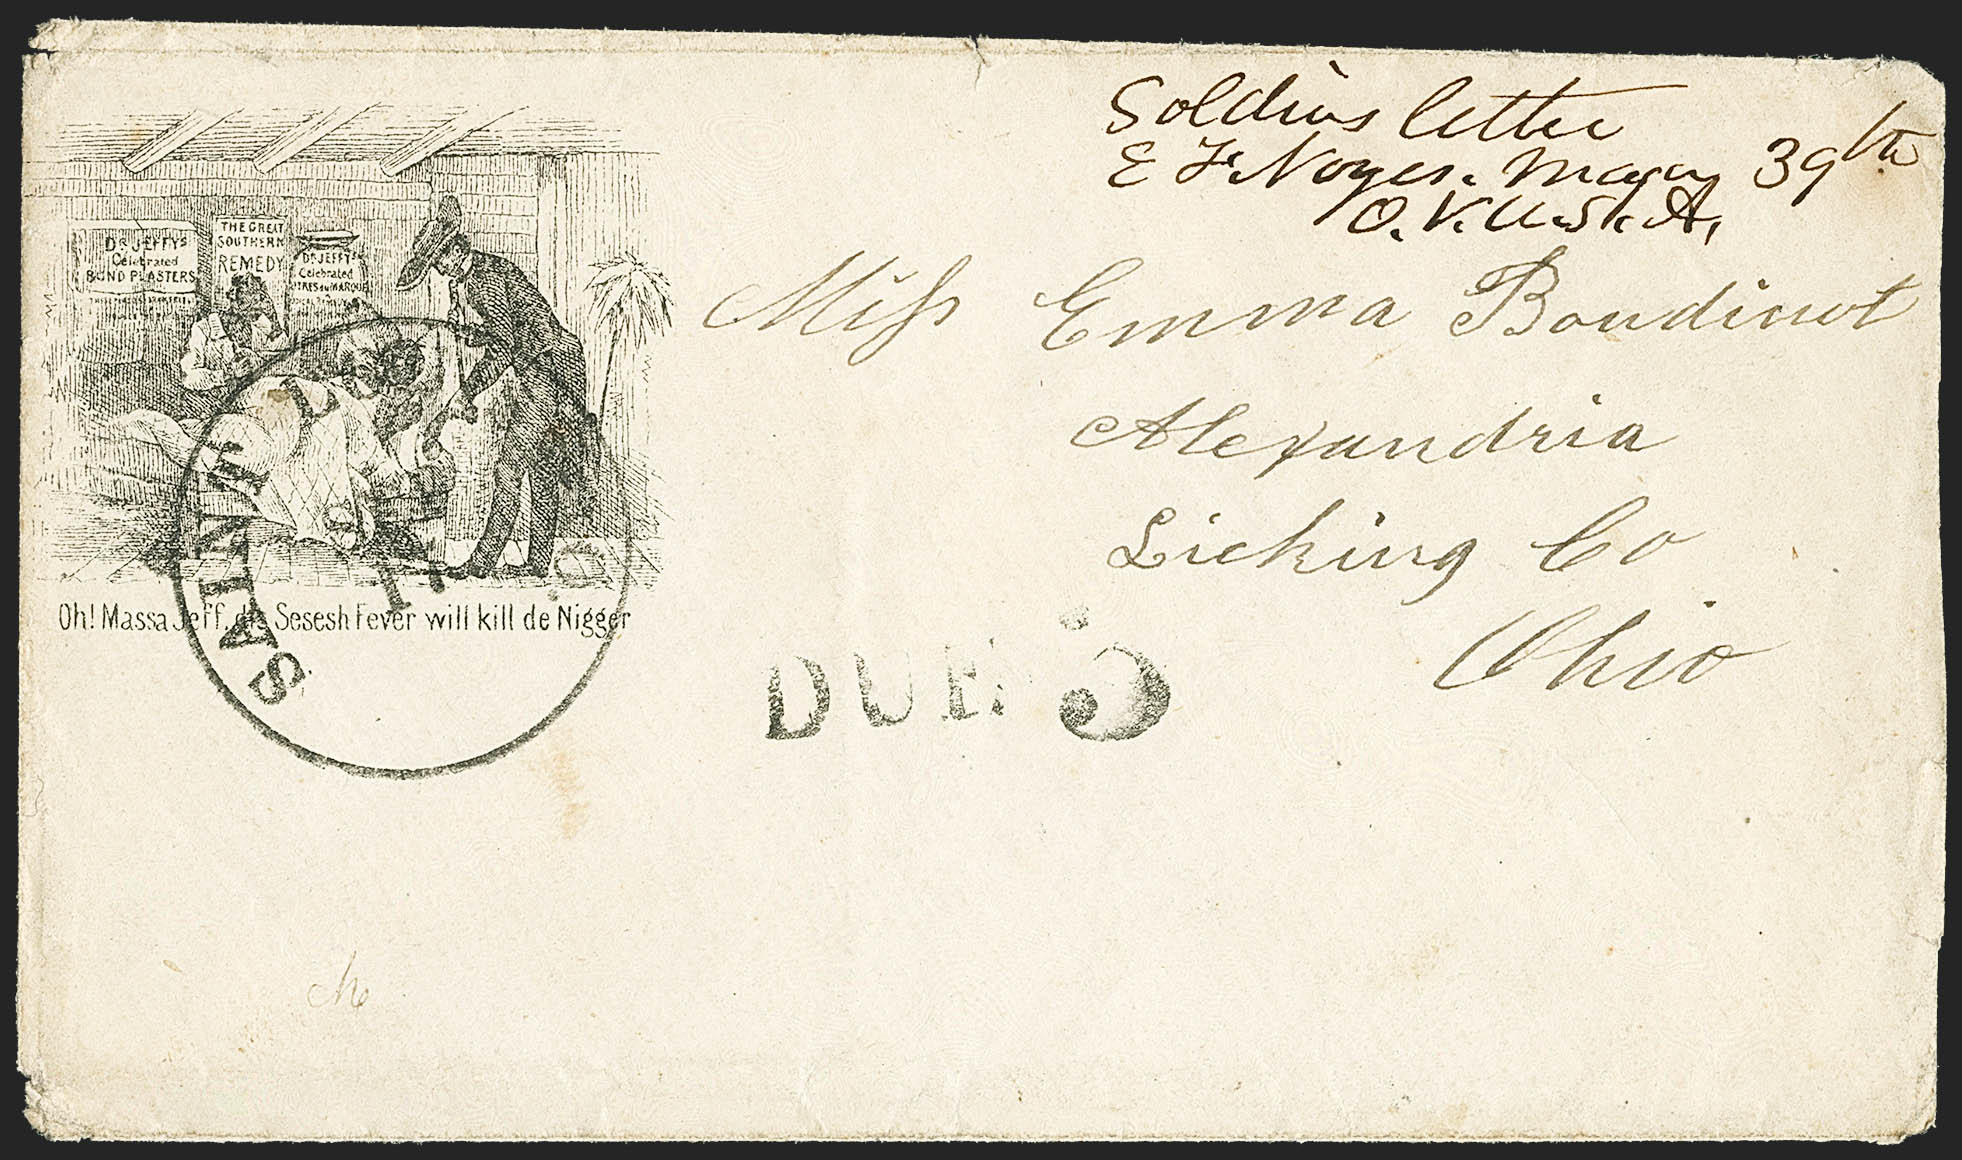 Soldiers letter
E F Noyes. Major 39th
O. V. U.S.A.
Miss Emma Boudinot
Alexandria
Licking Co
Ohio
DR JEFFYS
Celebrated
BOND PLASTERS
THE GREAT
SOUTHERN
REMEDY
DR JEFFYS
Celebrated
Oh! Massa Jeff. dis Sesesh Fever will kill de Nigger
SAINT LOU
DUE 3
Mo